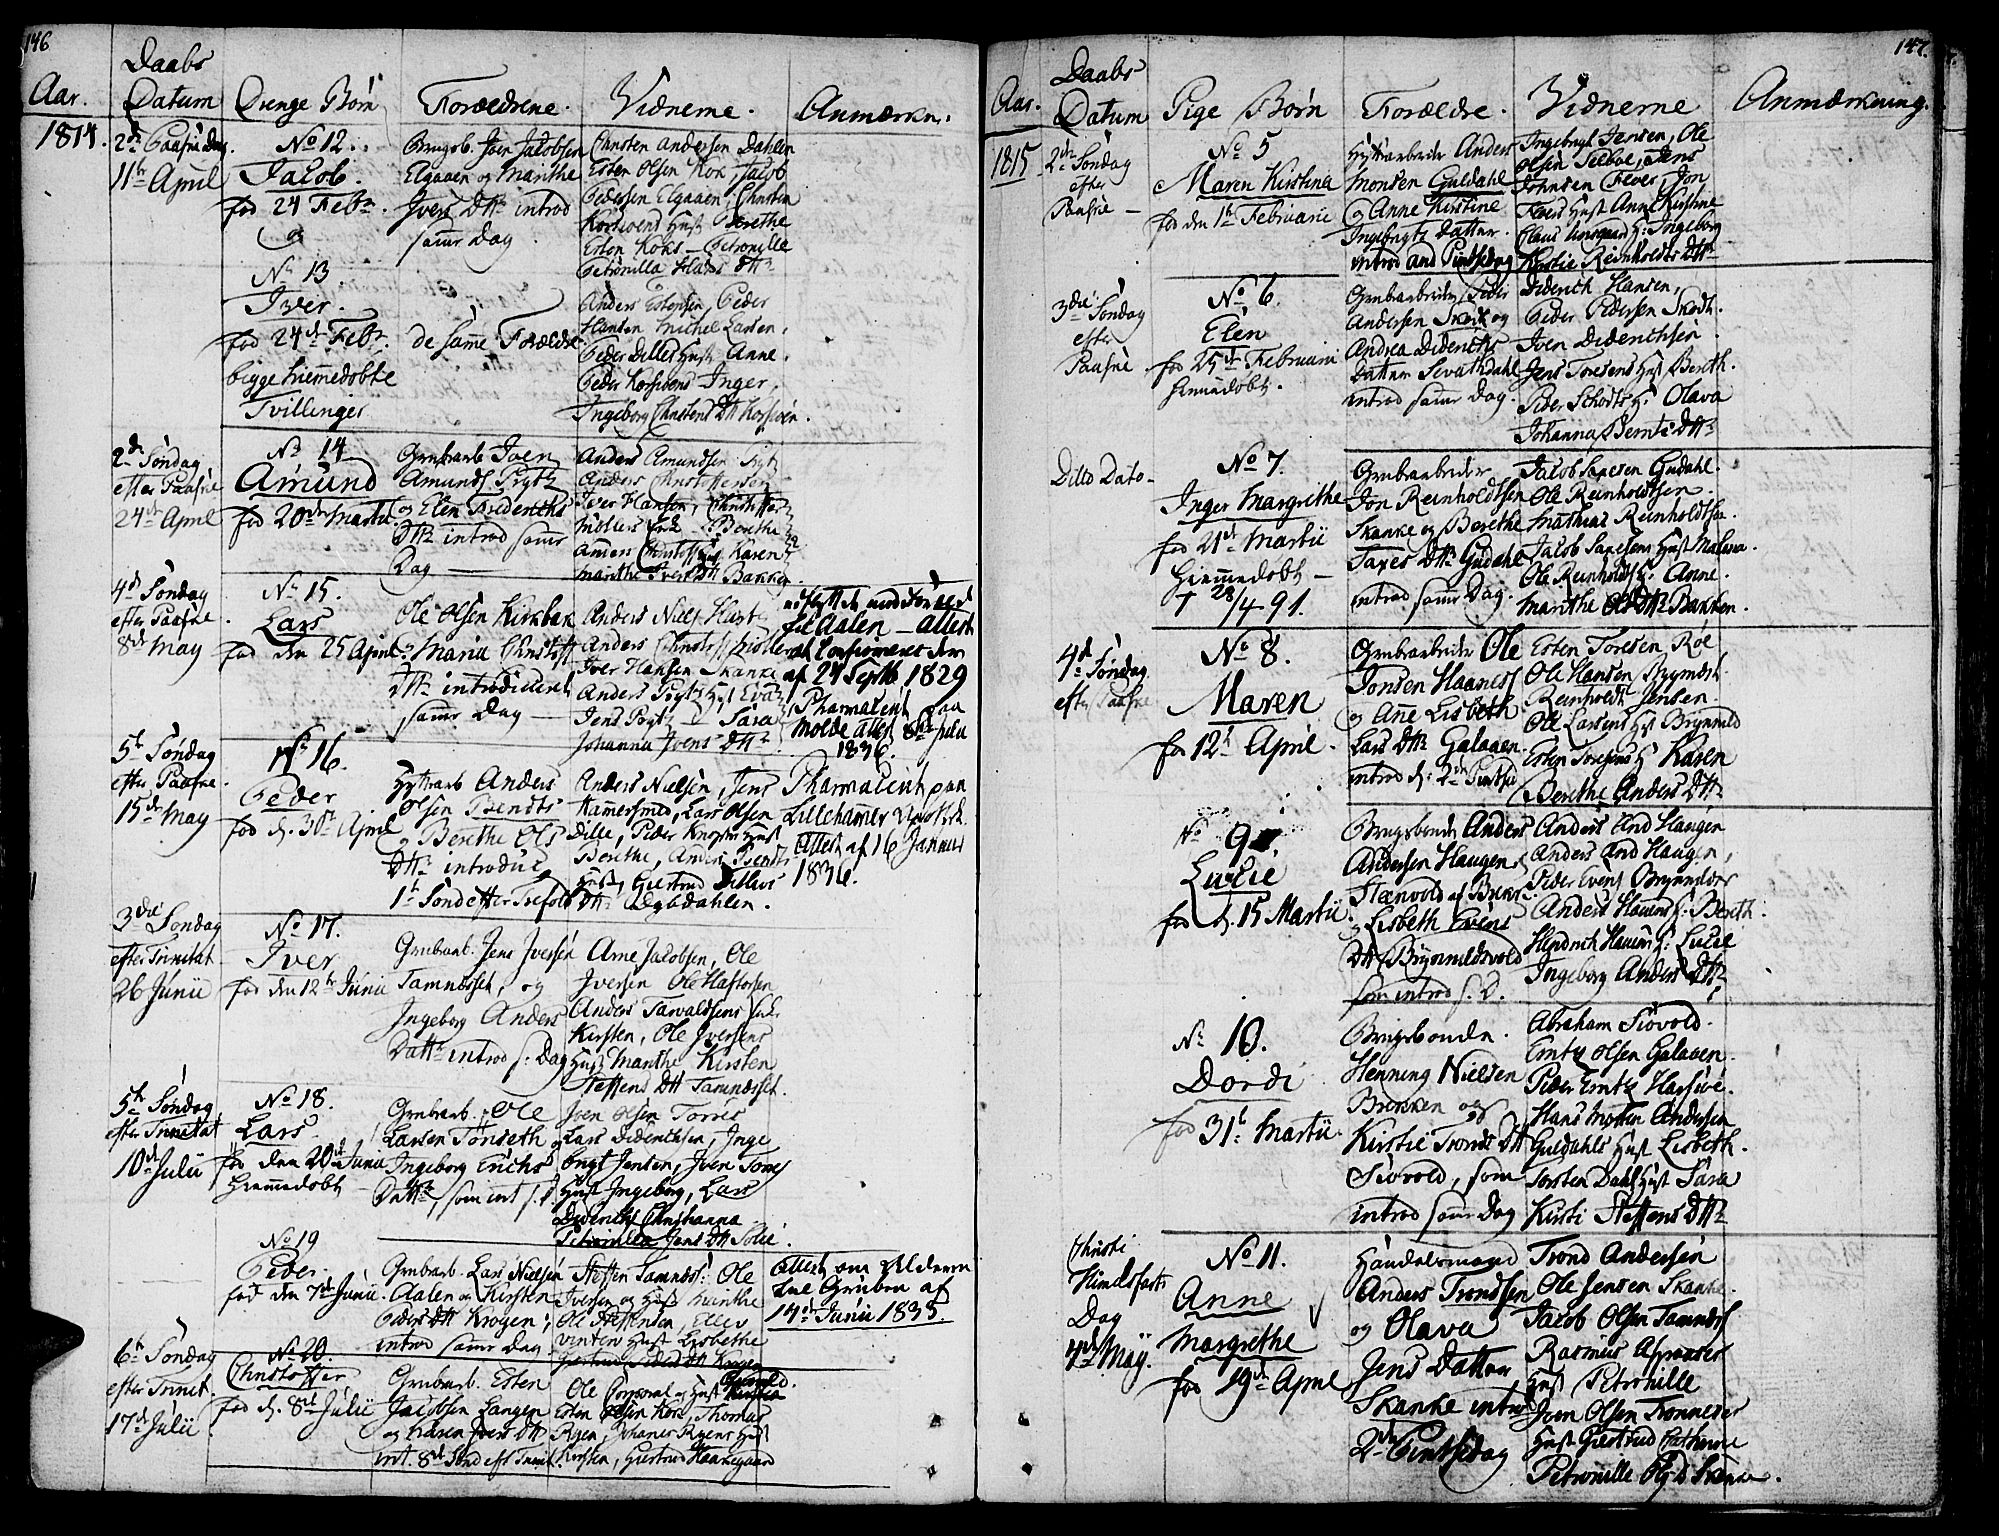 146
Aar.
Daabs
Datum
Drenge Børn
Forældrene.
Vidnerne.
Anmærkn:
1814.
2den Paaske Dag
11te April
No 12.
Jacob.
fød 24 Febr.
og
Brugsb. Iver Jacobsen
Elgaaen og Marithe
Ivers Dttr introd
samme Dag
Christen Andersen Dahlen
Esten Olsen Kok, Jacob
Pedersen Elgaaen, Christen
Korssvens Hust Berethe
Esten Koks – Petronille
Petronilla Hans Dttr
No 13.
Iver.
fød 24de Febr.
begge hiemmedøbte
Tvillinger
de samme Forældre
Anders Estensen, Peder
Hansen Michel Larsen,
Peder Dilles Hust Anne.
Peder Korssvens Inger,
Ingeborg Christens Dtt Korssvên.
2den Søndag
efter Paaske
24de April
No 14
Amund
fød 20de Martii.
Grubearb Iver
Amunds Prytz
og Elen Frederichs
Dttr introd samme
Dag –
Anders Amundsen Prytz
Anders Christoffersen
Iver Hansen, Christoffer
Møllers Enke Berethe
Anders Christoff Hust Karen
Marithe Ivers Dtt Bakken
4de Søndag
efter Paaske.
8de May
No 15.
Lars
fød den 25 April
Ole Olsen Kirkbak
og Maria Christoff
Dttr introduceret
samme Dag –
Anders Niels Hust
Anders Christoff Møller
Iver Hansen Skanke
Anders Prytz H. Eva
Jens Prytz – Sara
Johanna Ivers Dttr
til Aalen – Attest
at confirmeres der
af 24 Septb 1829
Pharmaceut paa
Molde attest 8de Julii
1836.
5te Søndag
efter Paaske.
15de May
No 16.
Peder
fød d. 30te April
Hyttearb Anders
Olsen Bendts
og Berethe Ols
Dttr introduc
1te Sønd efter Trefold
Anders Nielsen, Jens
Hammersmed, Lars Olsen
Dille, Peder Hust
Berethe, Anders Bendts
Hust, Giertrud Tillers
Dttr Dybdahlen.
Pharmaceut paa
Lillehammer
Attest af 16 Januar
1836.
3die Søndag
efter Trinitat
26 Junii
No 17.
Iver
fød den 12te Junii
Grubearb. Jens Iversen
Tamnesset, og
Ingeborg Anders
Datter introd s. Dag
Arne Jacobsen, Ole
Iversen Ole Haftorsen
Anders Tarvaldsens Enke
Kirsten, Ole Iversens
Hust Marithe Kirsten
Steffens Dtt Tamnesset.
5te Søndag
efter Trinitat
10de Julii
No 18.
Lars
fød den 20de Junii
Hiemmedøbt –
Grubearb. Ole
Larsen Tønseth
og Ingeborg Erichs
Datter, som int s. d
Iver Olsen Torres
Lars Diderichsen, Inge
brigt Jensen, Iver Torres
Hust Ingeborg, Lars
Diderichs Christianna
Petronilla Jens Dtt Solie.
No 19
Peder.
fød den 7de Junii.
Grubearb. Lars Nielsen
Aalen og Kirsten
Peders Dtt Krogen,
introd samme Dag.
Steffen Tamnes: Ole
Iversen og Hust Marithe
Ole Steffensen, Ellev
vinten Hust Lisbethe
Giertrud Peders Dtt Krogen
Attest om Alderen
til Gruben af
14de Junii 1835.
6te Søndag
efter Trinit.
17de Julii
No 20
Christoffer
fød d. 8de Julii
Grubearb. Esten
Jacobsen Langen
og Karen Ivers Dtt
int. 8de Sønd eft Trinit.
Ole Corporal og Hust Kirstia
Esten Olsen Kok, Thomas
Ryen, Johanes Ryens Hust
Kirsten, Giertrud Haanegaard
147.
Aar.
Daabs
Datum
Pige Børn
Forældre.
Vidnerne
Anmærkning.
1815
2den Søndag
efter
Paaske –
No 5
Maren Kirstina
fød den 1te Februarii
Hyttearbeider Anders
Monsen Guldahl
og Anne Kirstine
Ingebrigts Datter.
introd and Pintsedag
Ingebrigt Jensen, Ole
Olsen Feeboe, Jens
Johnsen Fever, Jon
Fevers Hust Anne Kirstine
Claus H: Ingeborg
Kirstie Reinholdts Dttr
3die Søndag
efter
Paaske
No 6.
Elen
fød 25de Februarii
hiemmedøbt.
Grubearbeider Peder
Andersen Skott og
Andrea Diderichs
Datter Sevatdahl
introd samme Dag.
Diderich Hansen,
Peder Pedersen Skott.
Iver Diderichsen
Jens Toresens Hust Bereth.
Peder Schotts H: Olava
Johanna Bernts Dttr
Ditto Dato –
No 7.
Inger Margrethe
fød 21de Martii
hiemmedøbt –
† 28/4 91.
Grubearbeider
Jon Reinholdtsen
Skanke og Berethe
Taxes Dttr Gudahl
introd samme Dag.
Jacob Saxesen Gudahl.
Ole Reinholdtsen
Mathias Reinholdtsen
Jacob Saxesens Hust Malena
Ole Reinholdts H: Anne.
Marithe Ols Dttr Bakken.
4de Søndag
efter Paaske
No 8.
Maren
fød 12te April.
Grubearbeider Ole
Jonsen Haanes
og Anne Lisbeth
Lars Dttr Galaaen.
introd d: 2den Pintsed
Esten Toresen, Roe
Ole Hansen Rugmoet.
Reinholdt Jensen
Ole Larsens H: Brynnild
Esten Toresens H: Karen
Berethe Anders Dttr
No 9.
Lucie
fød d. 15 Martii
Brugsbonde Anders
Andersen Haugen
Stenvold af Brekk.
og Lisbeth Evens
Dtt Brynnildsvold
som introd s. D.
Anders And Haugen
Anders And Haugen,
Peder Evens Brynnildsv
Anders Haugens H: Bereth.
Hendrich Haugens H: Lucie
Ingeborg Anders Dttr
No 10.
Dordi
fød 31te Martii.
Brugsbonden.
Henning Nielsen
Brekken og
Kirstie Tronds Dtt
Siøvold, som
introd samme Dag
Abraham Siøvold.
Erntz Olsen Galaaen.
Peder Erntz Harsiøe.
Hans Morten Andersen
Guldahls Hust Lisbeth.
Torsten Dahl Hust Sara
Kirsti Steffens Dttr
Christi
Himelfarts
Dag
4de May.
No 11.
Anne
Margrethe
fød 19de April
Handelsmand
Anders Trondsen
og Olava
Jens Datter
Skanke introd
2den Pintsedag
Trond Andersen
Ole Jensen Skanke.
Jacob Olsen Tamnes
Rasmus
Hust Petronille
Iver Olsen Tronnes
Hust Giertrud Cathrine
Petronille